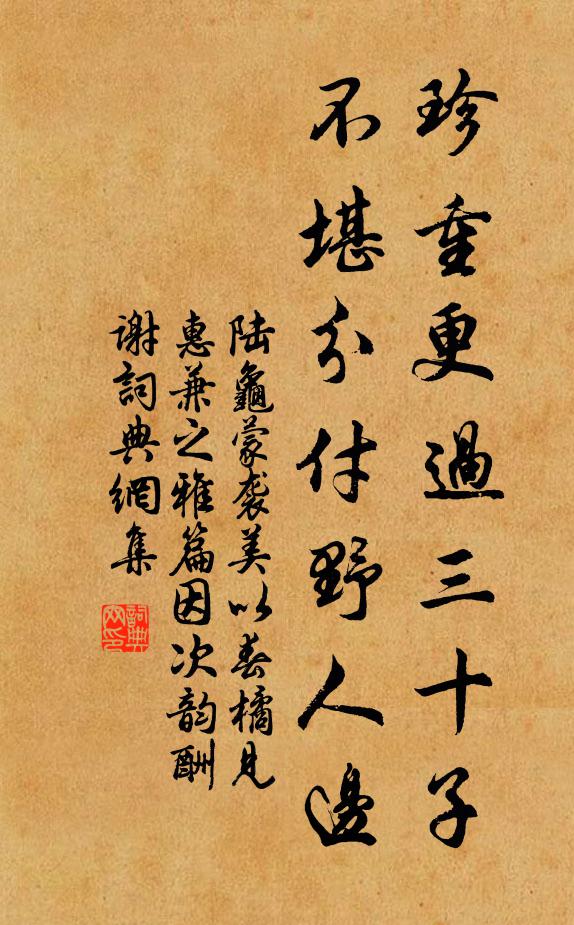 珍重更過三十子
不堪分付野人邊
陆龜蒙袭美以春橘見
惠兼之雅篇因次韵酬
谢詞典網集
詞典
网印